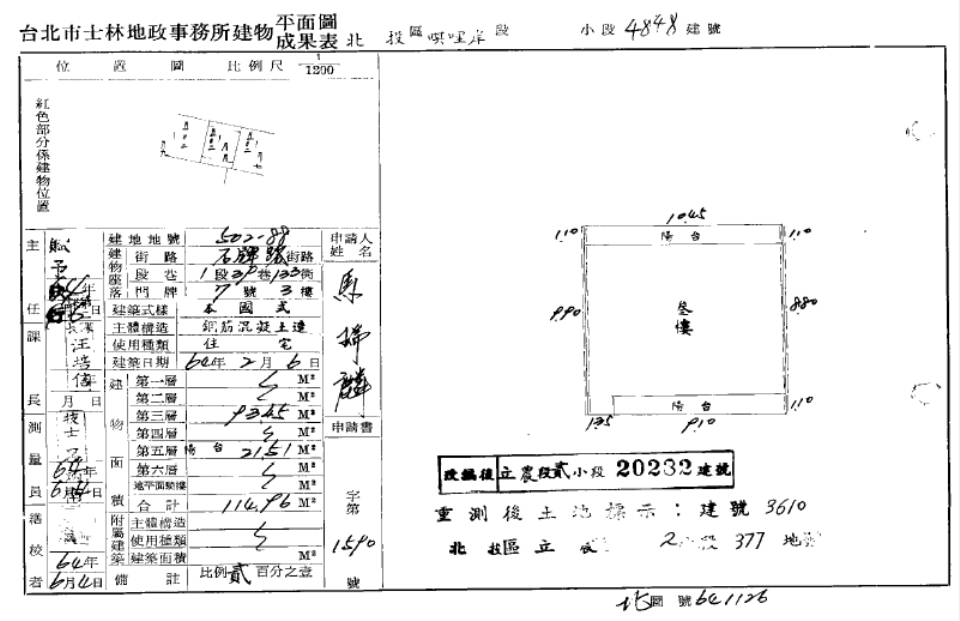 台北市士林地政事務所建物平面圖成果表 北投區唭哩岸段 小段 4848 建號
位置圖 比例尺 1/1200
紅色部分係建物位置
建地地號 502-88
建物座落 街路 石牌路街路
段巷 1段39巷133街
門牌 7號3樓
建築式樣 本國式
主體構造 鋼筋混凝土造
使用種類 住宅
建築日期 64年2月6日
建物面積
第一層 M²
第二層 M²
第三層 93.45 M²
第四層 M²
第五層 陽台 21.51 M²
第六層 M²
地平面騎樓 M²
合計 114.96 M²
附屬建築 主體構造
使用種類
建築面積 M²
備註 比例貳百分之壹
申請人姓名
馬
麟
申請書
字第
1590
號
主任
年
日
課長
汪培
月 日
測量員
技士
64年
6月4日
繕校者
64年
6月4日
10.45
1.10 陽台 1.10
9.90 叁樓 8.80
陽台 1.10
1.35 9.10
改編後 立農段貳小段 20232 建號
重測後土地標示：建號 3610
北投區立農 2小段 377 地號
北圖號 641126